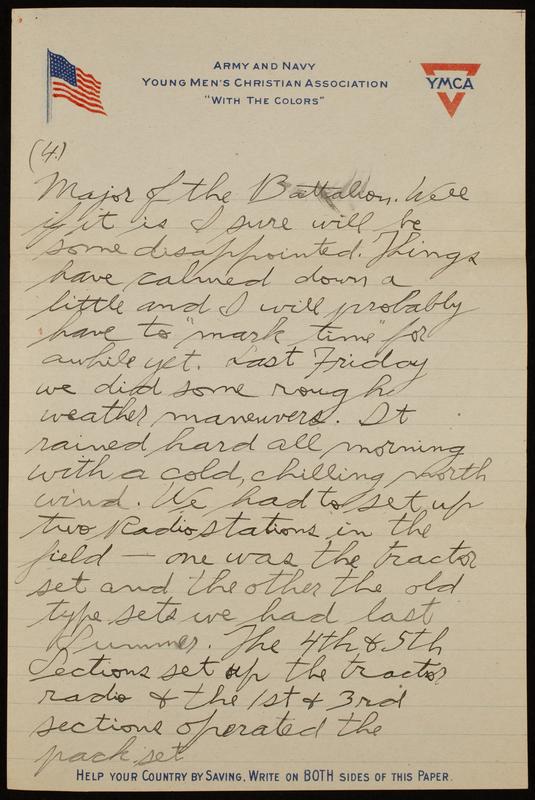 ARMY AND NAVY
YOUNG MEN'S CHRISTIAN ASSOCIATION
"WITH THE COLORS"
YMCA
(4.)
Major of the Battalion. Well
if it is I sure will be
some disappointed. Things
have calmed down a
little and I will probably
have to "mark time" for
awhile yet. Last Friday
we did some rough
weather maneuvers. It
rained hard all morning
with a cold, chilling north
wind. We had to set up
two Radio stations in the
field — one was the tractor
set and the other the old
type sets we had last
Summer. The 4th & 5th
Sections set up the tractor
radio & the 1st & 3rd
sections operated the
pack set
HELP YOUR COUNTRY BY SAVING, WRITE ON BOTH SIDES OF THIS PAPER.